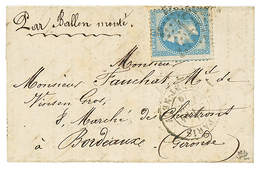 Par Ballon monté.
Monsieur
Monsieur Fauchat Md. de
Vin en Gros,
8, Marché des Chartrons
à Bordeaux
Gironde